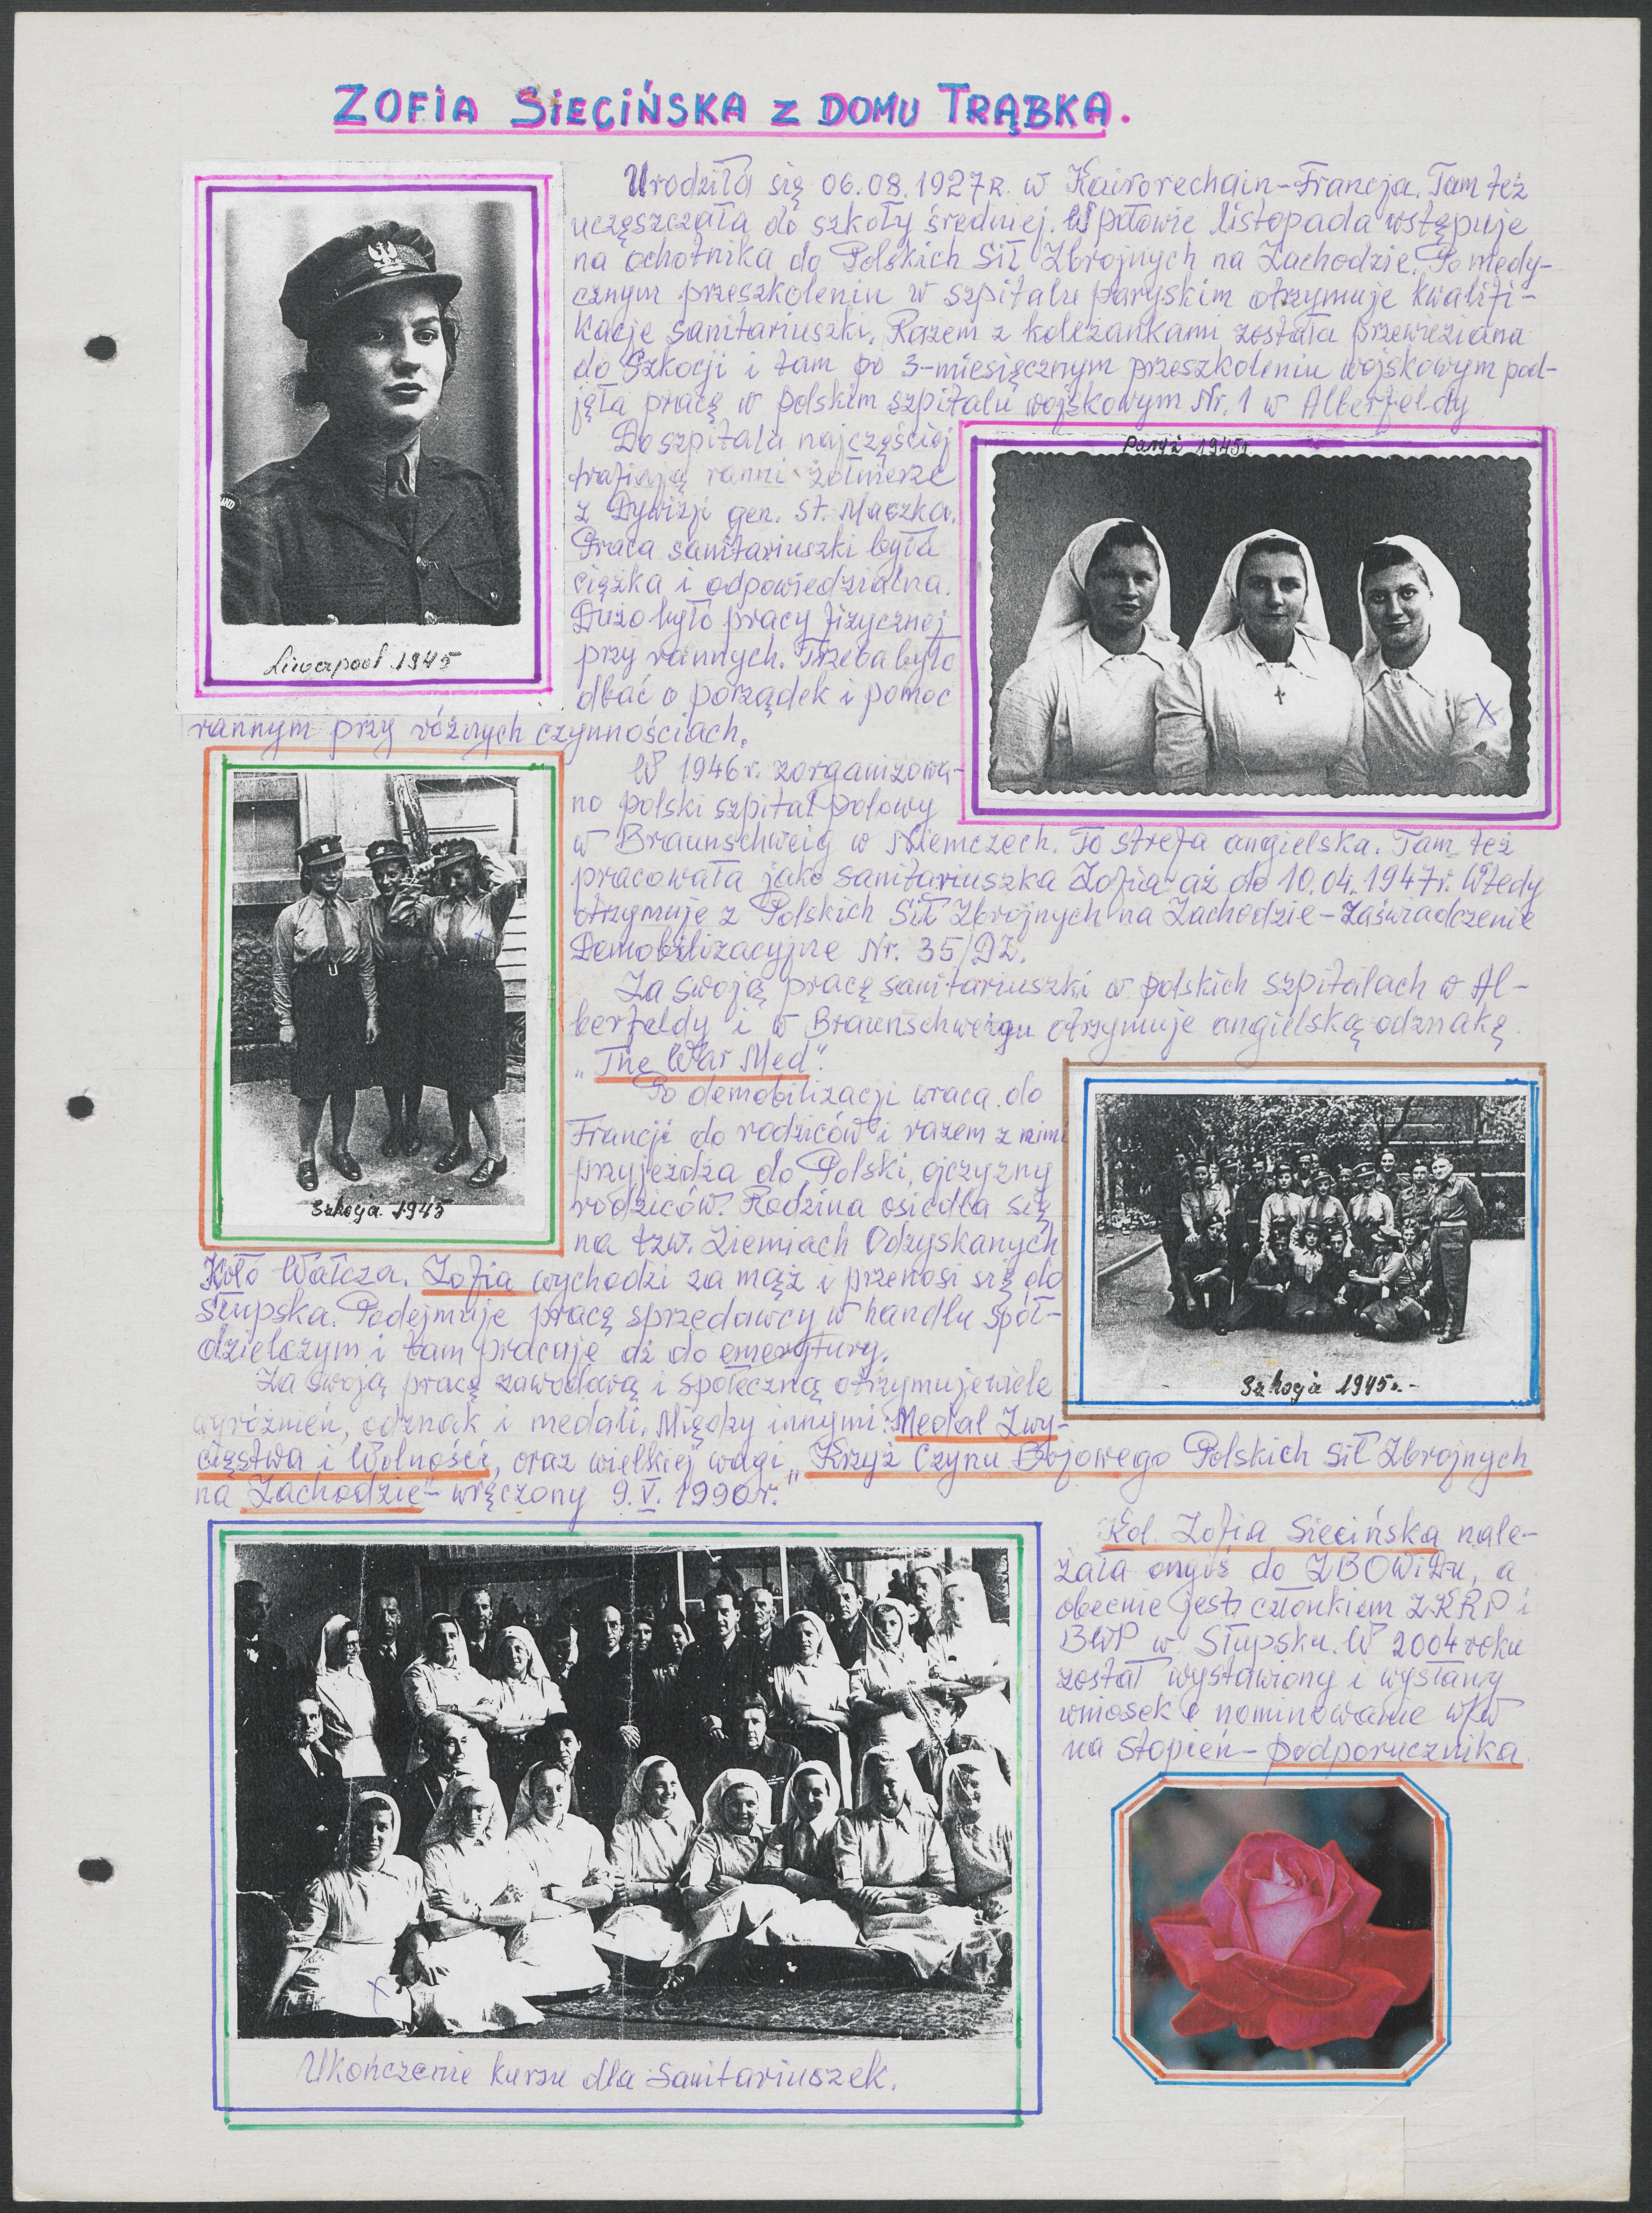 ZOFIA SIECIŃSKA Z DOMU TRĄBKA.
Urodziła się 06.08.1927 r. w Kairorechain-Francja. Tam też
uczęszczała do szkoły średniej. W połowie listopada wstępuje
na ochotnika do Polskich Sił Zbrojnych na Zachodzie. Po medy-
cznym przeszkoleniu w szpitalu paryskim otrzymuje kwalifi-
kacje sanitariuszki. Razem z koleżankami została przewieziona
do Szkocji i tam po 3-miesięcznym przeszkoleniu wojskowym pod-
jęła pracę w polskim szpitalu wojskowym Nr. 1 w Alberfeldy
Liverpool 1945
Do szpitala najczęściej
trafiają ranni żołnierze
z Dywizji gen. St. Maczka.
Praca sanitariuszki była
ciężka i odpowiedzialna.
Dużo było pracy fizycznej
przy rannych. Trzeba było
dbać o porządek i pomoc
rannym przy różnych czynnościach.
Paryż 1945r.
X
W 1946r. zorganizowa-
no polski szpital polowy
w Braunschweig w Niemczech. To strefa angielska. Tam też
pracowała jako sanitariuszka Zofia aż do 10.04.1947r. Wtedy
otrzymuje z Polskich Sił Zbrojnych na Zachodzie - Zaświadczenie
Demobilizacyjne Nr. 35/DZ.
Za swoją pracę sanitariuszki w polskich szpitalach w Al-
berfeldy i w Braunschweigu otrzymuje angielską odznakę
„The War Med".
X
Szkocja 1945
Po demobilizacji wraca do
Francji do rodziców i razem z nimi
przyjeżdża do Polski, ojczyzny
rodziców. Rodzina osiedla się
na tzw. Ziemiach Odzyskanych
Koło Wałcza. Zofia wychodzi za mąż i przenosi się do
Słupska. Podejmuje pracę sprzedawcy w handlu spół-
dzielczym i tam pracuje aż do emerytury.
Za swoją pracę zawodową i społeczną otrzymuje wiele
wyróżnień, odznak i medali. Między innymi: Medal Zwy-
cięstwa i Wolności, oraz wielkiej wagi „Krzyż Czynu Bojowego Polskich Sił Zbrojnych
na Zachodzie" - wręczony 9.V.1990r."
Szkocja 1945r.-
Kol. Zofia Siecińska nale-
żała ongiś do ZBOWiDu, a
obecnie jest członkiem ZKRP i
BWP w Słupsku. W 2004 roku
został wystawiony i wysłany
wniosek o nominowanie w/w
na stopień - podporucznika.
X
Ukończenie kursu dla sanitariuszek.